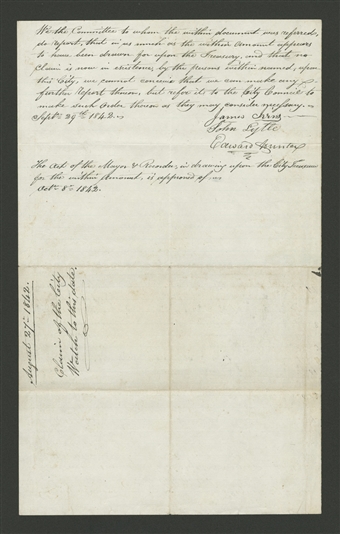 We the Committee to whom the within document was referred,
do report, that in as much as the within amount appears
to have been drawn for upon the Treasury, and that no
claim is now in existence, by the persons within named, upon
this City, we cannot conceive that we can make any
further report thereon, but refer it to the City Council to
make such order thereon as they may consider necessary.
Sept. 1842.
James
John Lytle
Edward Hunter
The act of the Mayor & Recorder, in drawing upon the City Treasurer
for the within amount, is approved of.
Oct. 8th 1842.
August 27th 1842.
Claim of the City
Watch to this date.